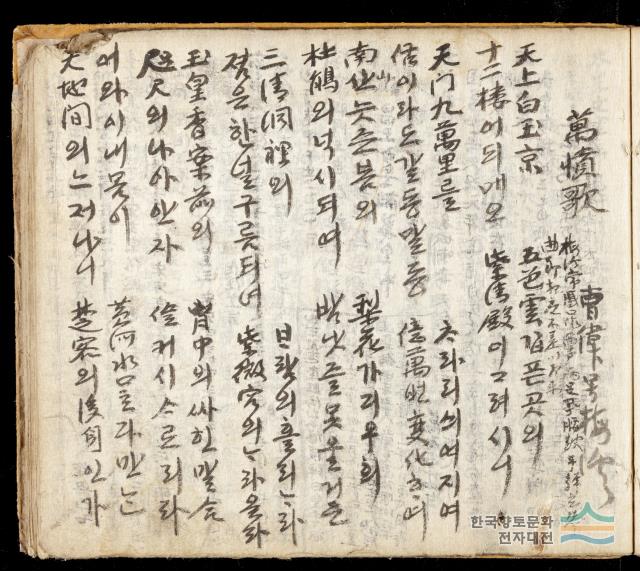 萬憤歌
曺偉号梅溪
天上白玉京
十二樓어듸매오
五色雲깁픈곳의
紫淸殿이가려시니
天门九萬里를
이라도갈동말동
ᄎᆞ라리싀여지여
億萬變化ᄒᆞ여
南山늣즌봄의
杜鵑의넉시되여
梨花가디우희
밤낫즐못울거든
三淸洞裡의
졈은한널구름되여
ᄇᆞ람의흘리ᄂᆞ라
紫微宮의ᄂᆞ라올라
玉皇香案前의
咫尺의나아안자
胷中의싸힌말ᄉᆞᆷ
커시ᄉᆞ로리라
어와이내몸이
天地间의느저나니
黃河水다만ᄂᆞᆫ
楚客의後身인가
한국향토문화
전자대전